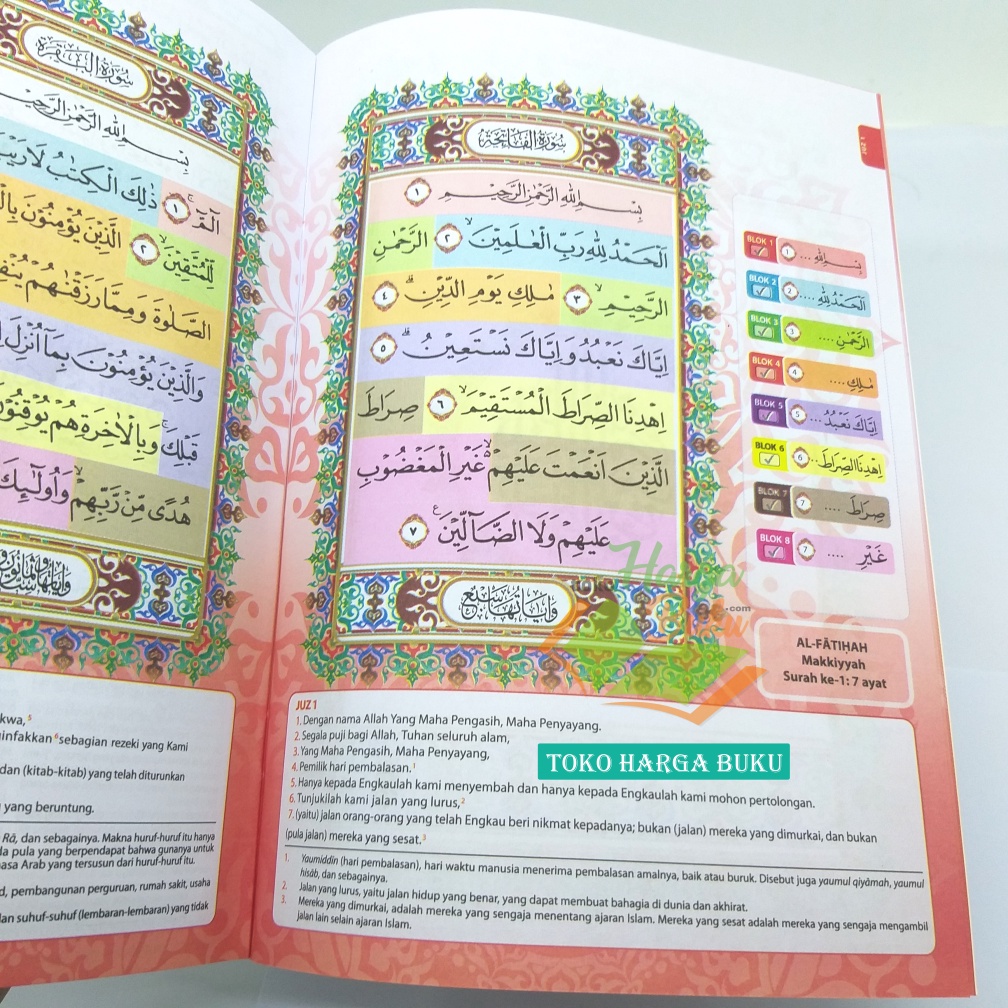 سُوْرَةُ الْفَاتِحَةِ
بِسْمِ اللّٰهِ الرَّحْمٰنِ الرَّحِيْمِ ١
اَلْحَمْدُ لِلّٰهِ رَبِّ الْعٰلَمِيْنَۙ ٢ الرَّحْمٰنِ
الرَّحِيْمِۙ ٣ مٰلِكِ يَوْمِ الدِّيْنِۗ ٤
اِيَّاكَ نَعْبُدُ وَاِيَّاكَ نَسْتَعِيْنُۗ ٥
اِهْدِنَا الصِّرَاطَ الْمُسْتَقِيْمَۙ ٦ صِرَاطَ
الَّذِيْنَ اَنْعَمْتَ عَلَيْهِمْ ەۙ غَيْرِ الْمَغْضُوْبِ
عَلَيْهِمْ وَلَا الضَّاۤلِّيْنَࣖ ٧
وَاٰيَاتُهَا سَبْعٌ
JUZ 1
BLOK 1 1 بِسْمِ اللّٰهِ ....
BLOK 2 2 اَلْحَمْدُ لِلّٰهِ ....
BLOK 3 3 الرَّحْمٰنِ ....
BLOK 4 4 مٰلِكِ ....
BLOK 5 5 اِيَّاكَ نَعْبُدُ ...
BLOK 6 6 اِهْدِنَا الصِّرَاطَ ...
BLOK 7 7 صِرَاطَ ....
BLOK 8 7 غَيْرِ ....
AL-FĀTIḤAH
Makkiyyah
Surah ke-1: 7 ayat
JUZ 1
1. Dengan nama Allah Yang Maha Pengasih, Maha Penyayang.
2. Segala puji bagi Allah, Tuhan seluruh alam,
3. Yang Maha Pengasih, Maha Penyayang,
4. Pemilik hari pembalasan.¹
5. Hanya kepada Engkaulah kami menyembah dan hanya kepada Engkaulah kami mohon pertolongan.
6. Tunjukilah kami jalan yang lurus,²
7. (yaitu) jalan orang-orang yang telah Engkau beri nikmat kepadanya; bukan (jalan) mereka yang dimurkai, dan bukan
(pula jalan) mereka yang sesat.³
1. Yaumiddin (hari pembalasan), hari waktu manusia menerima pembalasan amalnya, baik atau buruk. Disebut juga yaumul qiyāmah, yaumul
hisāb, dan sebagainya.
2. Jalan yang lurus, yaitu jalan hidup yang benar, yang dapat membuat bahagia di dunia dan akhirat.
3. Mereka yang dimurkai, adalah mereka yang sengaja menentang ajaran Islam. Mereka yang sesat adalah mereka yang sengaja mengambil
jalan lain selain ajaran Islam.
TOKO HARGA BUKU
Toko
Harga
.com
سُوْرَةُ الْبَقَرَةِ
بِسْمِ اللّٰهِ الرَّحْمٰنِ الرَّحِيْ
الۤمّۤۚ ١ ذٰلِكَ الْكِتٰبُ لَا رَيْبَ
لِّلْمُتَّقِيْنَۙ ٢ الَّذِيْنَ يُؤْمِنُوْنَ
الصَّلٰوةَ وَمِمَّا رَزَقْنٰهُمْ
وَالَّذِيْنَ يُؤْمِنُوْنَ بِمَآ اُنْزِلَ
قَبْلِكَۚ وَبِالْاٰخِرَةِ هُمْ يُوْقِنُوْ
هُدًى مِّنْ رَّبِّهِمْۙ وَاُولٰۤىِٕكَ
kwa,⁵
infakkan⁶ sebagian rezeki yang Kami
dan (kitab-kitab) yang telah diturunkan
yang beruntung.
Rā, dan sebagainya. Makna huruf-huruf itu hanya
a pula yang berpendapat bahwa gunanya untuk
asa Arab yang tersusun dari huruf-huruf itu.
d, pembangunan perguruan, rumah sakit, usaha
an suhuf-suhuf (lembaran-lembaran) yang tidak